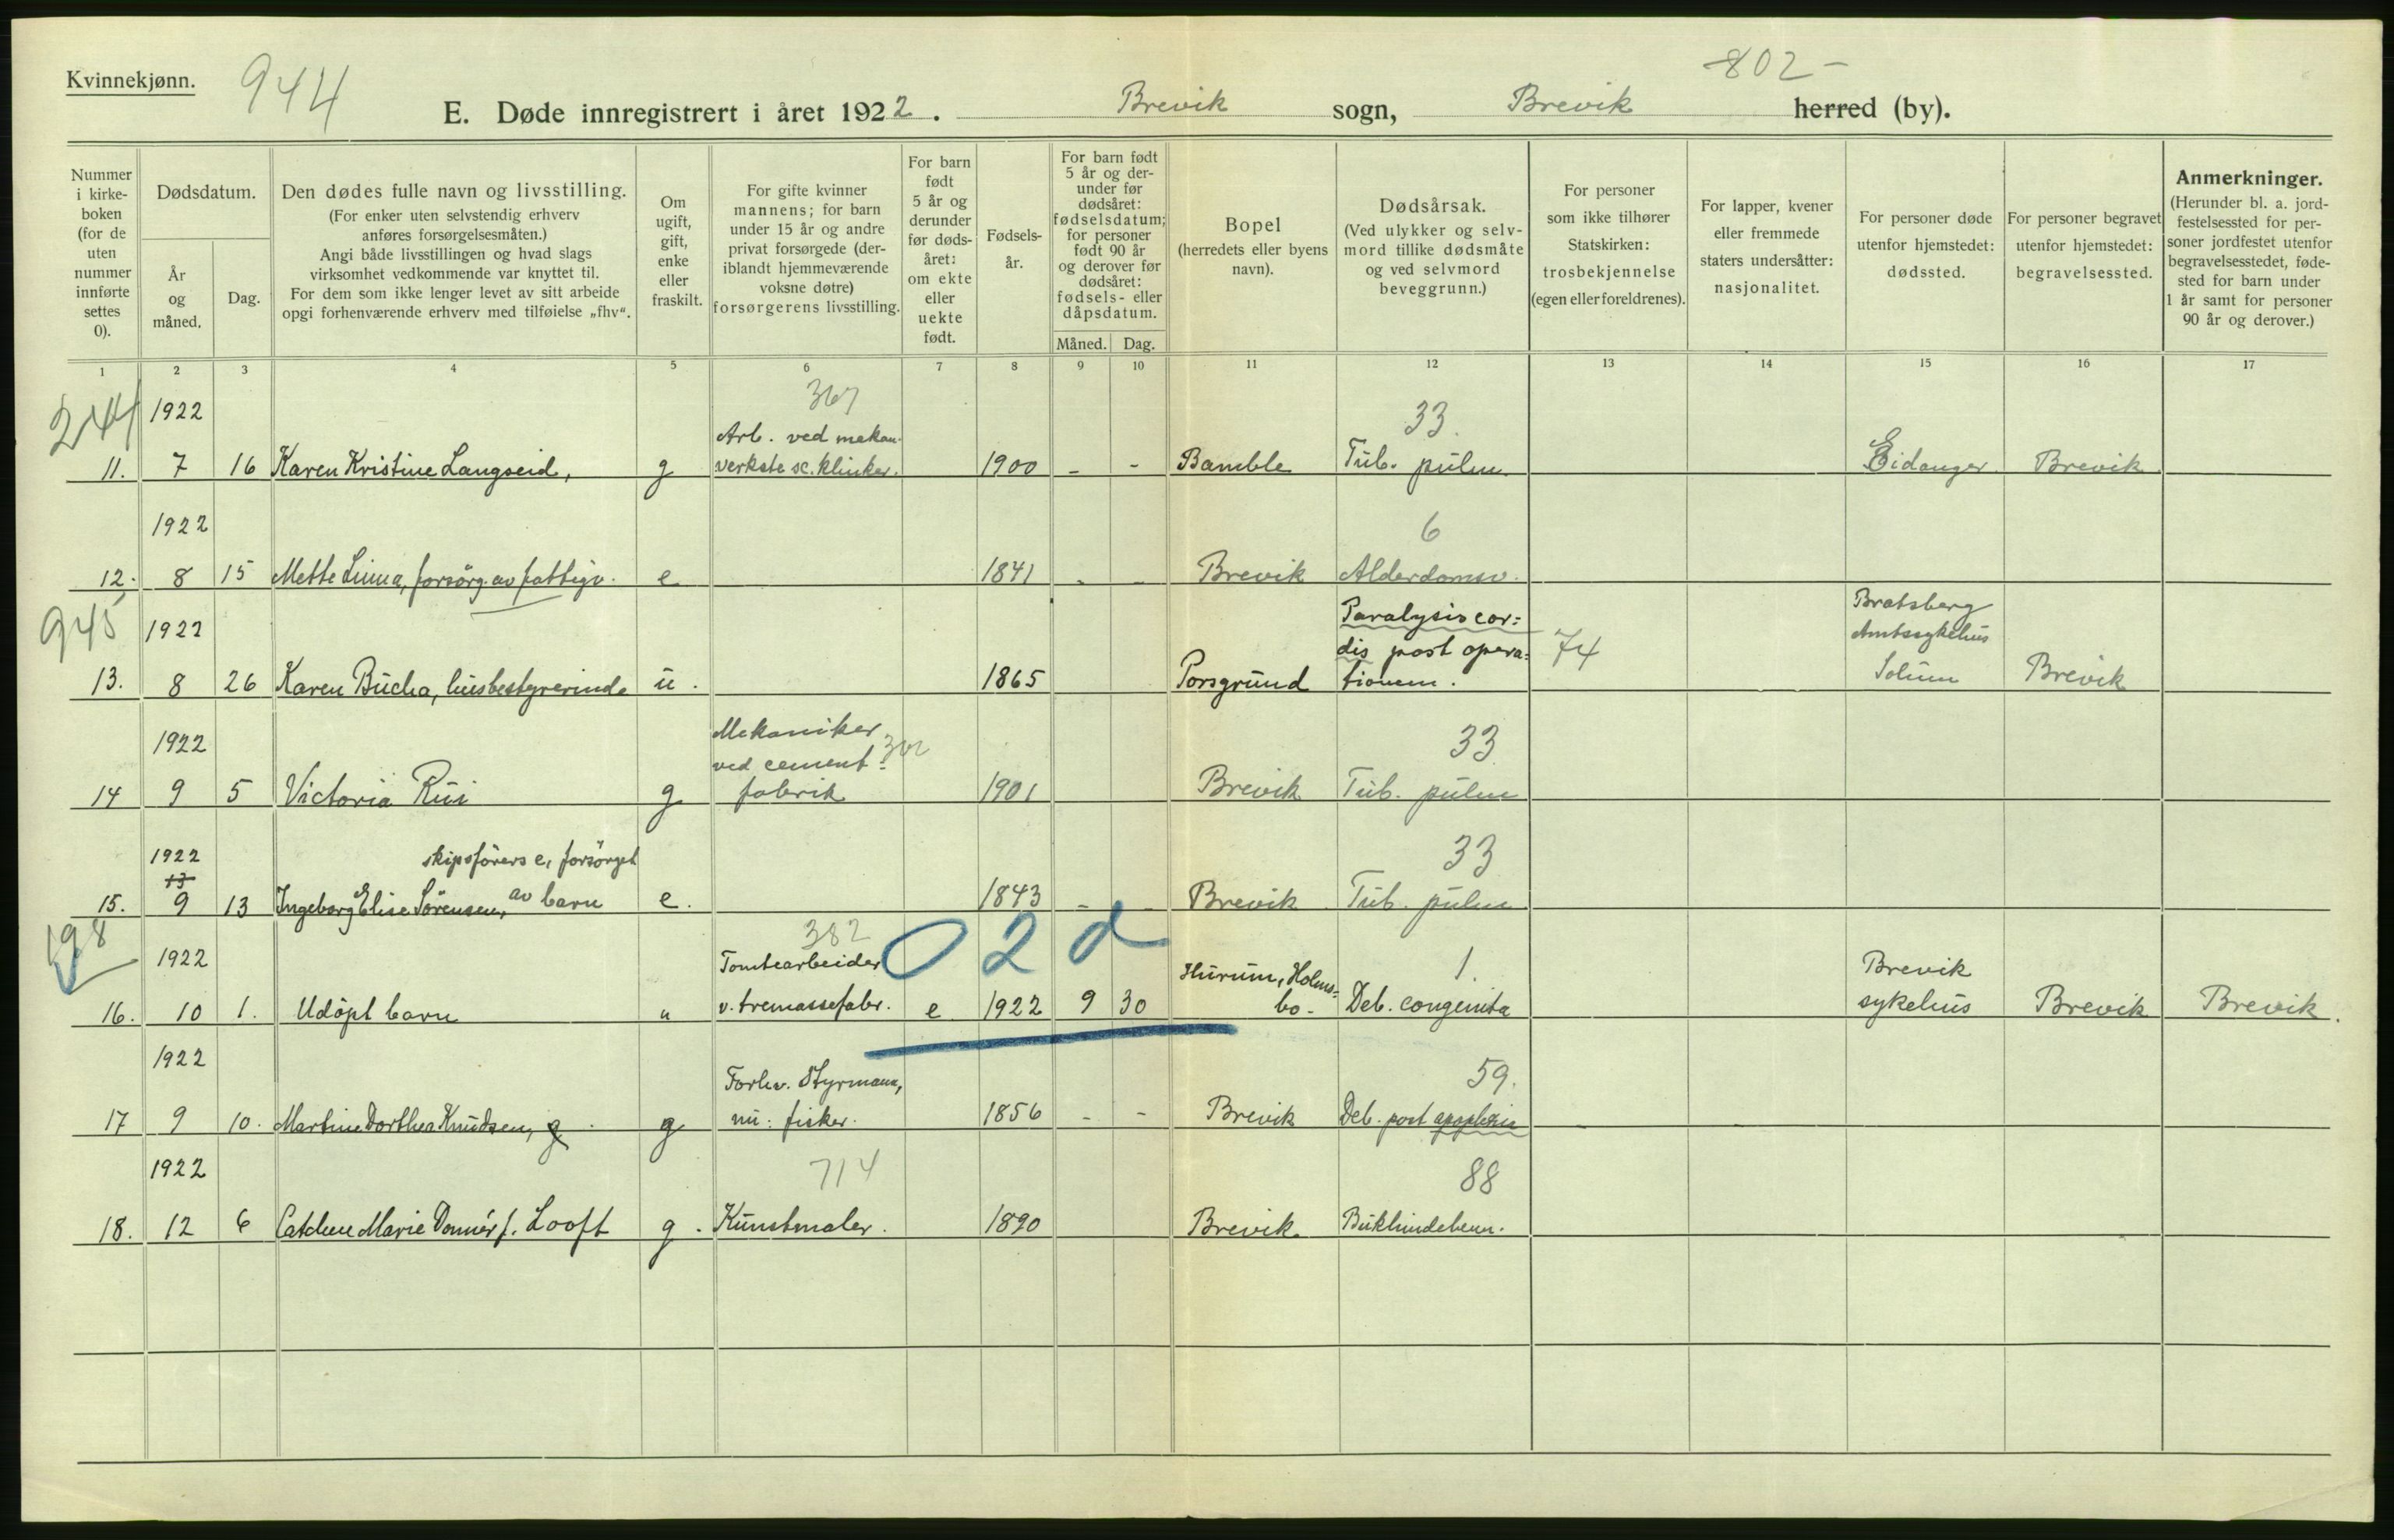 Kvinnekjønn.
944
802-
E. Døde innregistrert i året 1922. Brevik sogn, Brevik herred (by).
Nummer i kirke-boken (for de uten nummer innførte settes 0).
Dødsdatum.
År og måned.
Dag.
Den dødes fulle navn og livsstilling.
(For enker uten selvstendig erhverv
anføres forsørgelsesmåten.)
Angi både livsstillingen og hvad slags
virksomhet vedkommende var knyttet til.
For dem som ikke lenger levet av sitt arbeide
opgi forhenværende erhverv med tilføielse „fhv“.
Om
ugift,
gift,
enke
eller
fraskilt.
For gifte kvinner
mannens; for barn
under 15 år og andre
privat forsørgede (der-
iblandt hjemmeværende
voksne døtre)
forsørgerens livsstilling.
For barn
født
5 år og
derunder
før døds-
året:
om ekte
eller
uekte
født.
Fødsels-
år.
For barn født
5 år og der-
under før
dødsåret:
fødselsdatum;
for personer
født 90 år
og derover før
dødsåret:
fødsels- eller
dåpsdatum.
Måned. Dag.
Bopel
(herredets eller byens
navn).
Dødsårsak.
(Ved ulykker og selv-
mord tillike dødsmåte
og ved selvmord
beveggrunn.)
For personer
som ikke tilhører
Statskirken:
trosbekjennelse
(egen eller foreldrenes).
For lapper, kvener
eller fremmede
staters undersåtter:
nasjonalitet.
For personer døde
utenfor hjemstedet:
dødssted.
For personer begravet
utenfor hjemstedet:
begravelsessted.
Anmerkninger.
(Herunder bl. a. jord-
festelsessted for per-
soner jordfestet utenfor
begravelsesstedet, føde-
sted for barn under
1 år samt for personer
90 år og derover.)
1 2 3 4 5 6 7 8 9 10 11 12 13 14 15 16 17
244 1922 367 33.
Arb. ved mekan.
11. 7 16 Karen Kristine Langseid, g verkste sc. klinker. 1900 - - Bamble Tub. pulm. Eidanger Brevik
1922 6
12. 8 15 Mette Linna, forsörg. av fattigv. e 1841 - - Brevik Alderdomsv.
945 1922 Paralysis cor= Bratsberg
dis post opera= 74 Amtssykehus
13. 8 26 Karen Bucha, husbestyrerinde u. 1865 Porsgrund tionem. Solum Brevik
1922 Mekaniker 302 33
ved cement=
14 9 5 Victoria Rui g fabrik 1901 Brevik Tub. pulm
1922 skipsförers e, forsörget 33
13
15. 9 13 Ingeborg Elise Sörensen, av barn e. 1843 - - Brevik Tub. pulm
198 1922 382 0 2 d 1.
Tomtearbeider Hurum, Holms= Brevik
16. 10 1. Udöpt barn u v. tremassefabr. e 1922 9 30 bo- Deb. congenita sykehus Brevik Brevik.
1922 Forhv. Styrmann, 59.
17 9 10. Martine Dorthea Knudsen, g g nu: fisker. 1856 - - Brevik Deb. post apoplexie
1922 714 88
18. 12 6 Catchen Marie Donnér f. Looft g. Kunstmaler. 1890 Brevik. Bukhindebetn.